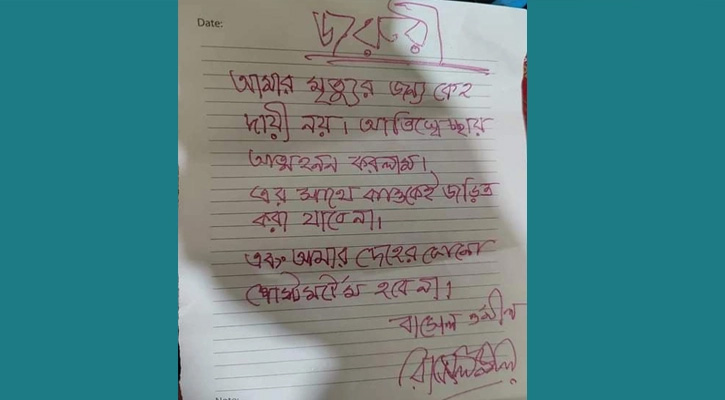 Date:
জরুরী
আমার মৃত্যুর জন্য কেহ
দায়ী নয়। আমি স্বেচ্ছায়
আত্মহনন করলাম।
এর সাথে কাওকেই জড়িত
করা যাবে না।
এবং আমার দেহের কোনো
পোস্টমর্টেম হবে না।